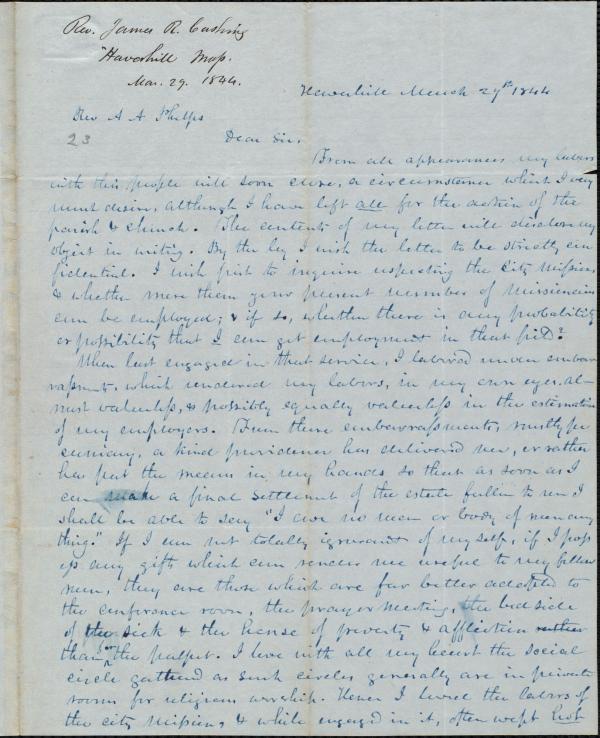 Rev. James R. Cushing
Haverhill Mass.
Mar. 29. 1844.
Haverhill March 29th 1844
Rev A A Phelps
23
Dear Sir,
From all appearances my labors
with this people will soon close, a circumstance which I very
much desire, although I have left all for the action of the
parish & church. The contents of my letter will disclose my
object in writing. By the by I wish the letter to be strictly con
fidential. I wish first to inquire respecting the City Missions
& whether more than your present number of missionaries
can be employed; & if so, whether there is any probability
or possibility that I can get employment in that field?
When last engaged in that service, I labored under embar
rassments, which rendered my labors, in my own eyes, al-
most valueless, & possibly equally valueless in the estimation
of my employers. From these embarrassments, mostly pe
cuniary, a kind providence has delivered me, or rather
has put the means in my hands so that as soon as I
can make a final settlement of the estate fallen to me I
shall be able to say "I owe no man or body of men any
thing." If I am not totally ignorant of myself, if I poss
ess any gifts which can render me useful to my fellow
men, they are those which are far better adapted to
the conference room, the prayer meeting, the bed side
of the sick & the house of poverty & affliction rather
than for the pulpit. I love with all my heart the social
circle gathered as such circles generally are in private
rooms for religious worship. Hence I loved the labors of
the city missions, & while engaged in it, often wept hot